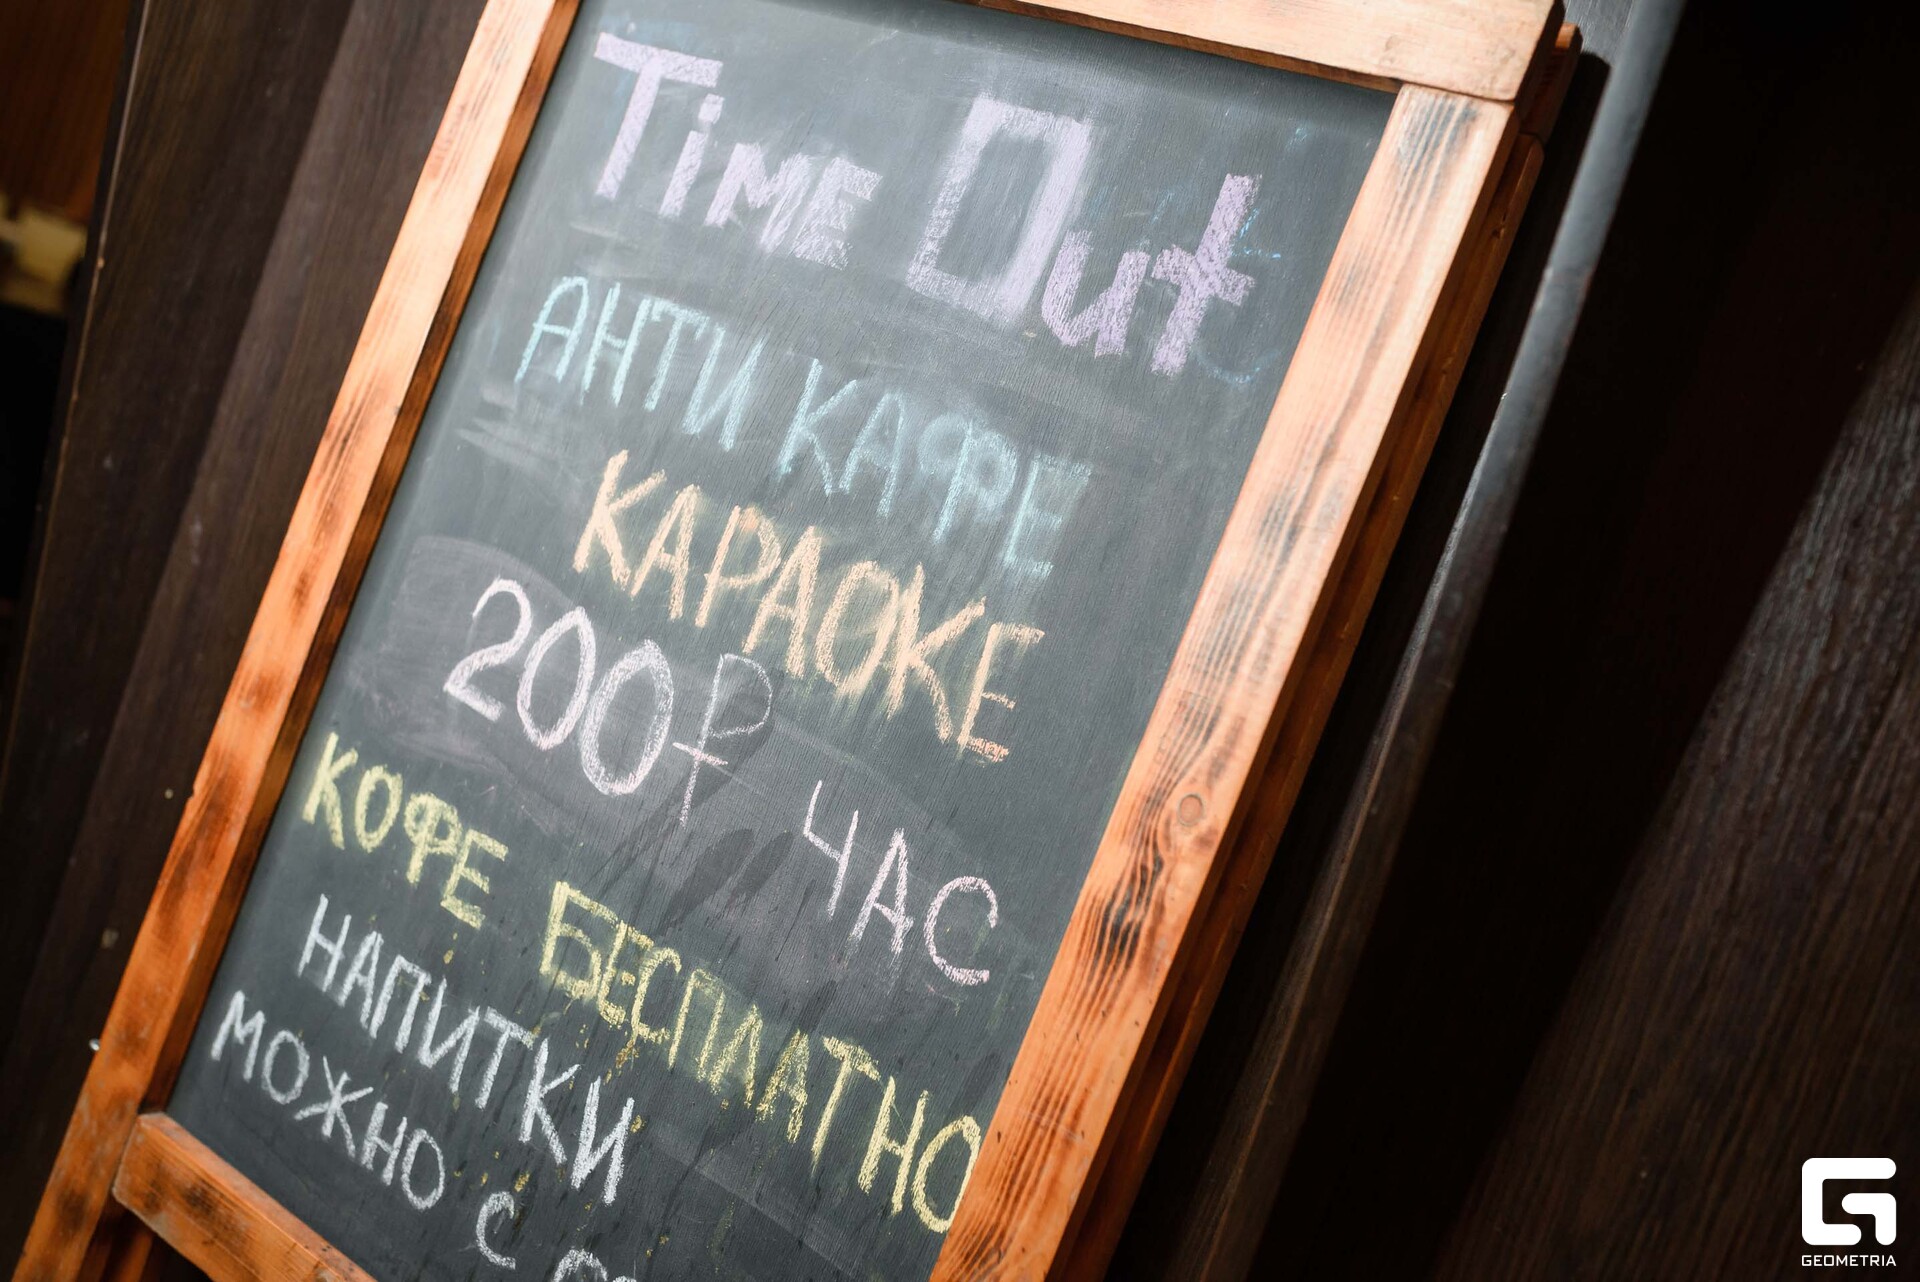 Time Out
АНТИ КАФЕ
КАРАОКЕ
200₽ ЧАС
КОФЕ БЕСПЛАТНО
НАПИТКИ
МОЖНО С
GEOMETRIA